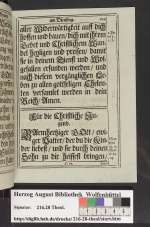 am Dinstag.
aller Widerwärtigkeit auff dich
hoffen und bauen / dich mit ihrem
Gebet und Christlichem Wan-
del heyligen und preisen / daß
sie in deinem Dienst und Wol-
gefallen erfunden werden / und
nach diesem vergänglichen Le-
ben zu allen gottseligen Christe-
ten versamlet werden in dem
Reich / Amen.
Für die Christliche Ju-
gend.
Barmhertziger GOtt / ewi-
ger Vatter / der du die Kin-
der liebest / und sie durch deinen
Sohn zu dir heissest bringen /
Herzog August Bibliothek Wolfenbüttel
Signatur: 216.28 Theol.
http://diglib.hab.de/drucke/216-28-theol/start.htm